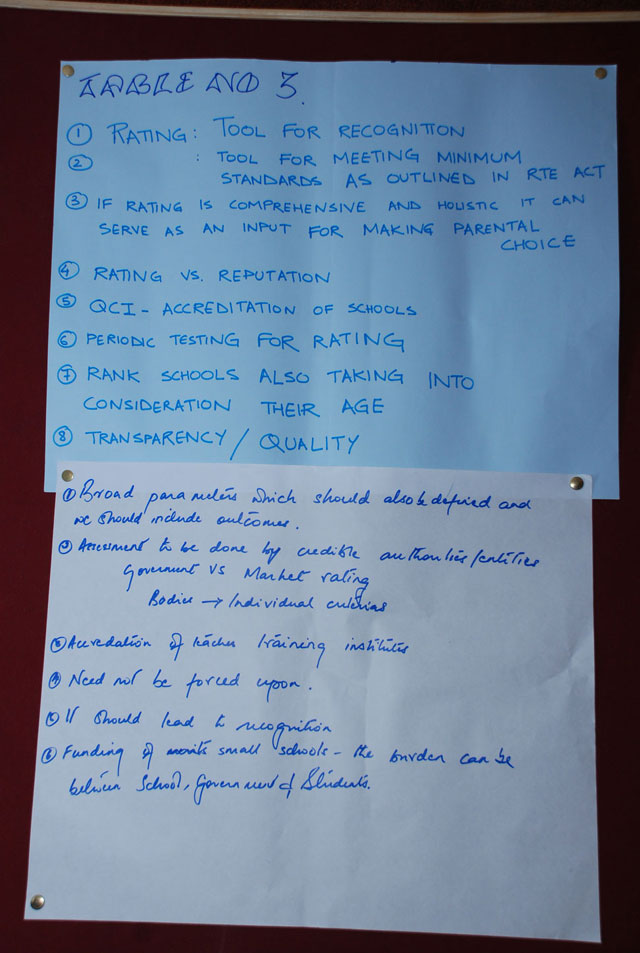 TABLE NO 3.
① RATING: TOOL FOR RECOGNITION
② : TOOL FOR MEETING MINIMUM
STANDARDS AS OUTLINED IN RTE ACT
③ IF RATING IS COMPREHENSIVE AND HOLISTIC IT CAN
SERVE AS AN INPUT FOR MAKING PARENTAL
CHOICE
④ RATING VS. REPUTATION
⑤ QCI - ACCREDITATION OF SCHOOLS
⑥ PERIODIC TESTING FOR RATING
⑦ RANK SCHOOLS ALSO TAKING INTO
CONSIDERATION THEIR AGE
⑧ TRANSPARENCY / QUALITY
① Broad parameters which should also be defined and
we should include outcomes.
② Assessment to be done by credible authorities/entities
Government VS Market rating
Bodies → Individual criterias
③ Accredation of teacher training institutes
④ Need not be forced upon.
⑤ It should lead to recognition
⑥ Funding of small schools - the burden can be
between School, Government & Students.